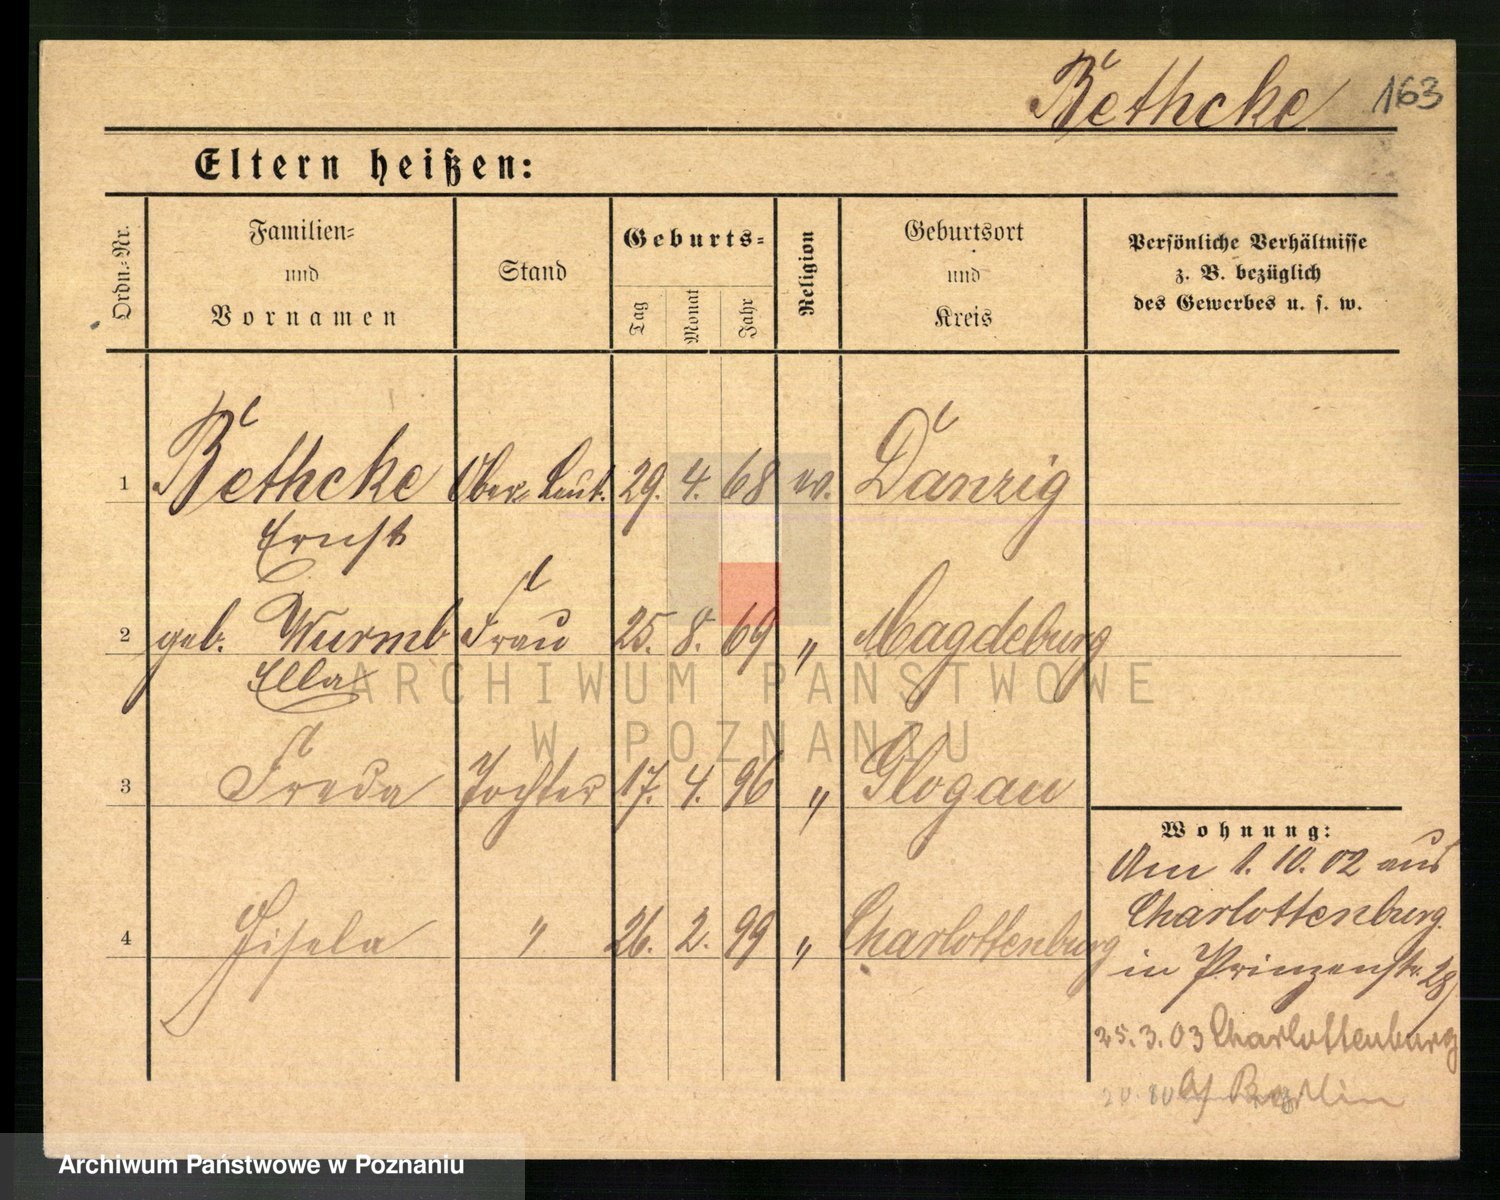 Bethcke 163
Eltern heißen:
Ordn.-Nr.
Familien-
und
Vornamen
Stand
Geburts-
Tag
Monat
Jahr
Religion
Geburtsort
und
Kreis
Persönliche Verhältnisse
z. B. bezüglich
des Gewerbes u. s. w.
1 Bethcke Ober-Leut. 29. 4. 68 ev. Danzig
Ernst
2 geb. Wurmb Frau 25. 8. 69 " Magdeburg
Ella
ARCHIWUM PAŃSTWOWE
W POZNANIU
3 Freda Tochter 17. 4. 96 " Glogau
4 Gisela " 26. 2. 99 " Charlottenburg
Wohnung:
Am 1. 10. 02 aus
Charlottenburg
in Prinzenstr. 28
25. 3. 03 Charlottenburg
Berlin
Archiwum Państwowe w Poznaniu